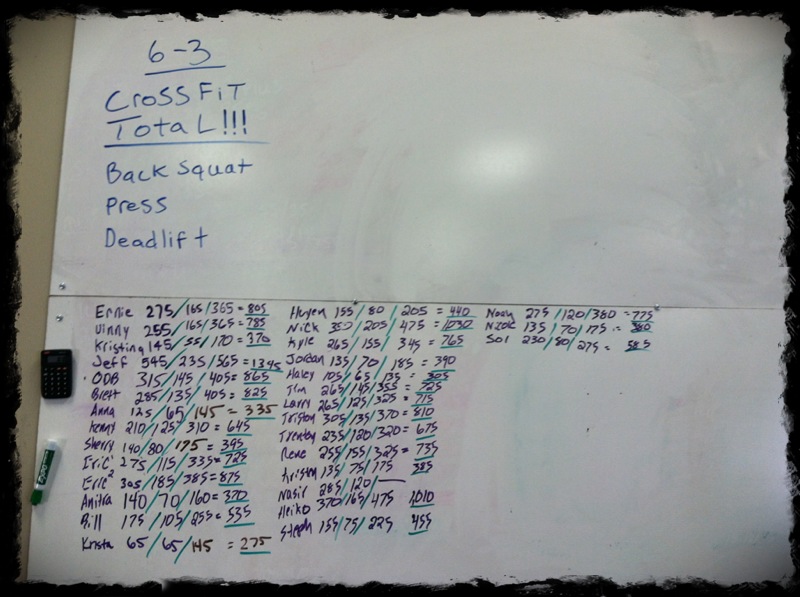 6-3
CrossFit
Total!!!
Back Squat
Press
Deadlift
Ernie 275/165/365=805
Vinny 255/165/365=785
Kristina 145/55/170=370
Jeff 545/235/565=1345
ODB 315/145/405=865
Brett 285/135/405=825
Anna 125/65/145=335
Kenny 210/125/310=645
Sherry 140/80/175=395
Eric¹ 275/115/335=725
Eric² 305/185/385=875
Anitra 140/70/160=370
Bill 175/105/255=535
Krista 65/65/145=275
Huyen 155/80/205=440
Nick 350/205/475=1030
Kyle 265/155/345=765
Jordan 135/70/185=390
Haley 105/65/135=305
Tim 265/145/355=725
Larry 265/125/325=715
Triston 305/135/370=810
Trenton 235/120/320=675
Rene 255/155/325=735
Kristen 135/75/175 385
Nasir 285/120/—
Heiko 370/165/475 1010
Steph 155/75/225 455
Noah 275/120/380=775
Nicole 135/70/175=380
Sol 230/80/275=585